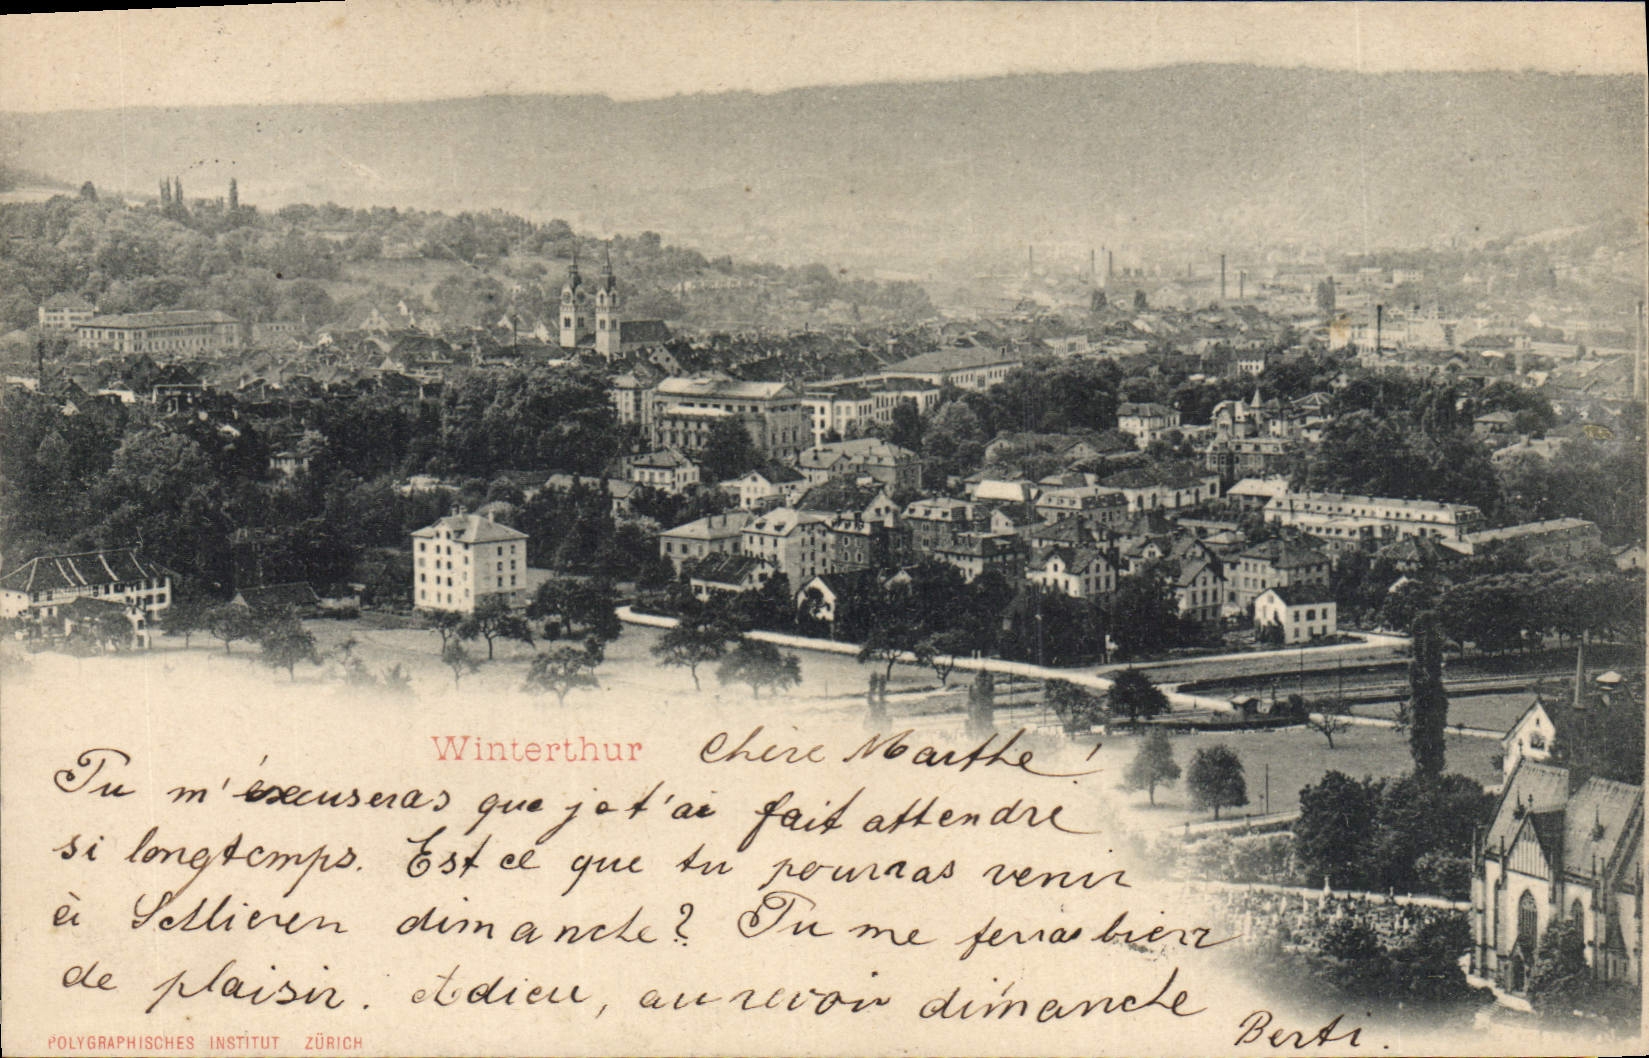 Winterthur
Chère Marthe !
Tu m'éxcuseras que je t'ai fait attendre
si longtemps. Est ce que tu pourras venir
à dimanche? Tu me ferras bien
de plaisir. Adieu, au revoir dimanche
Berti.
POLYGRAPHISCHES INSTITUT ZÜRICH